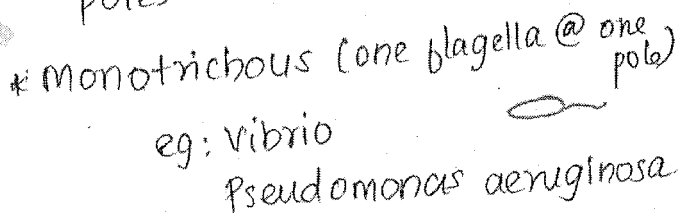 poles
* Monotrichous (one flagella @ one pole)
eg: Vibrio
Pseudomonas aeruginosa